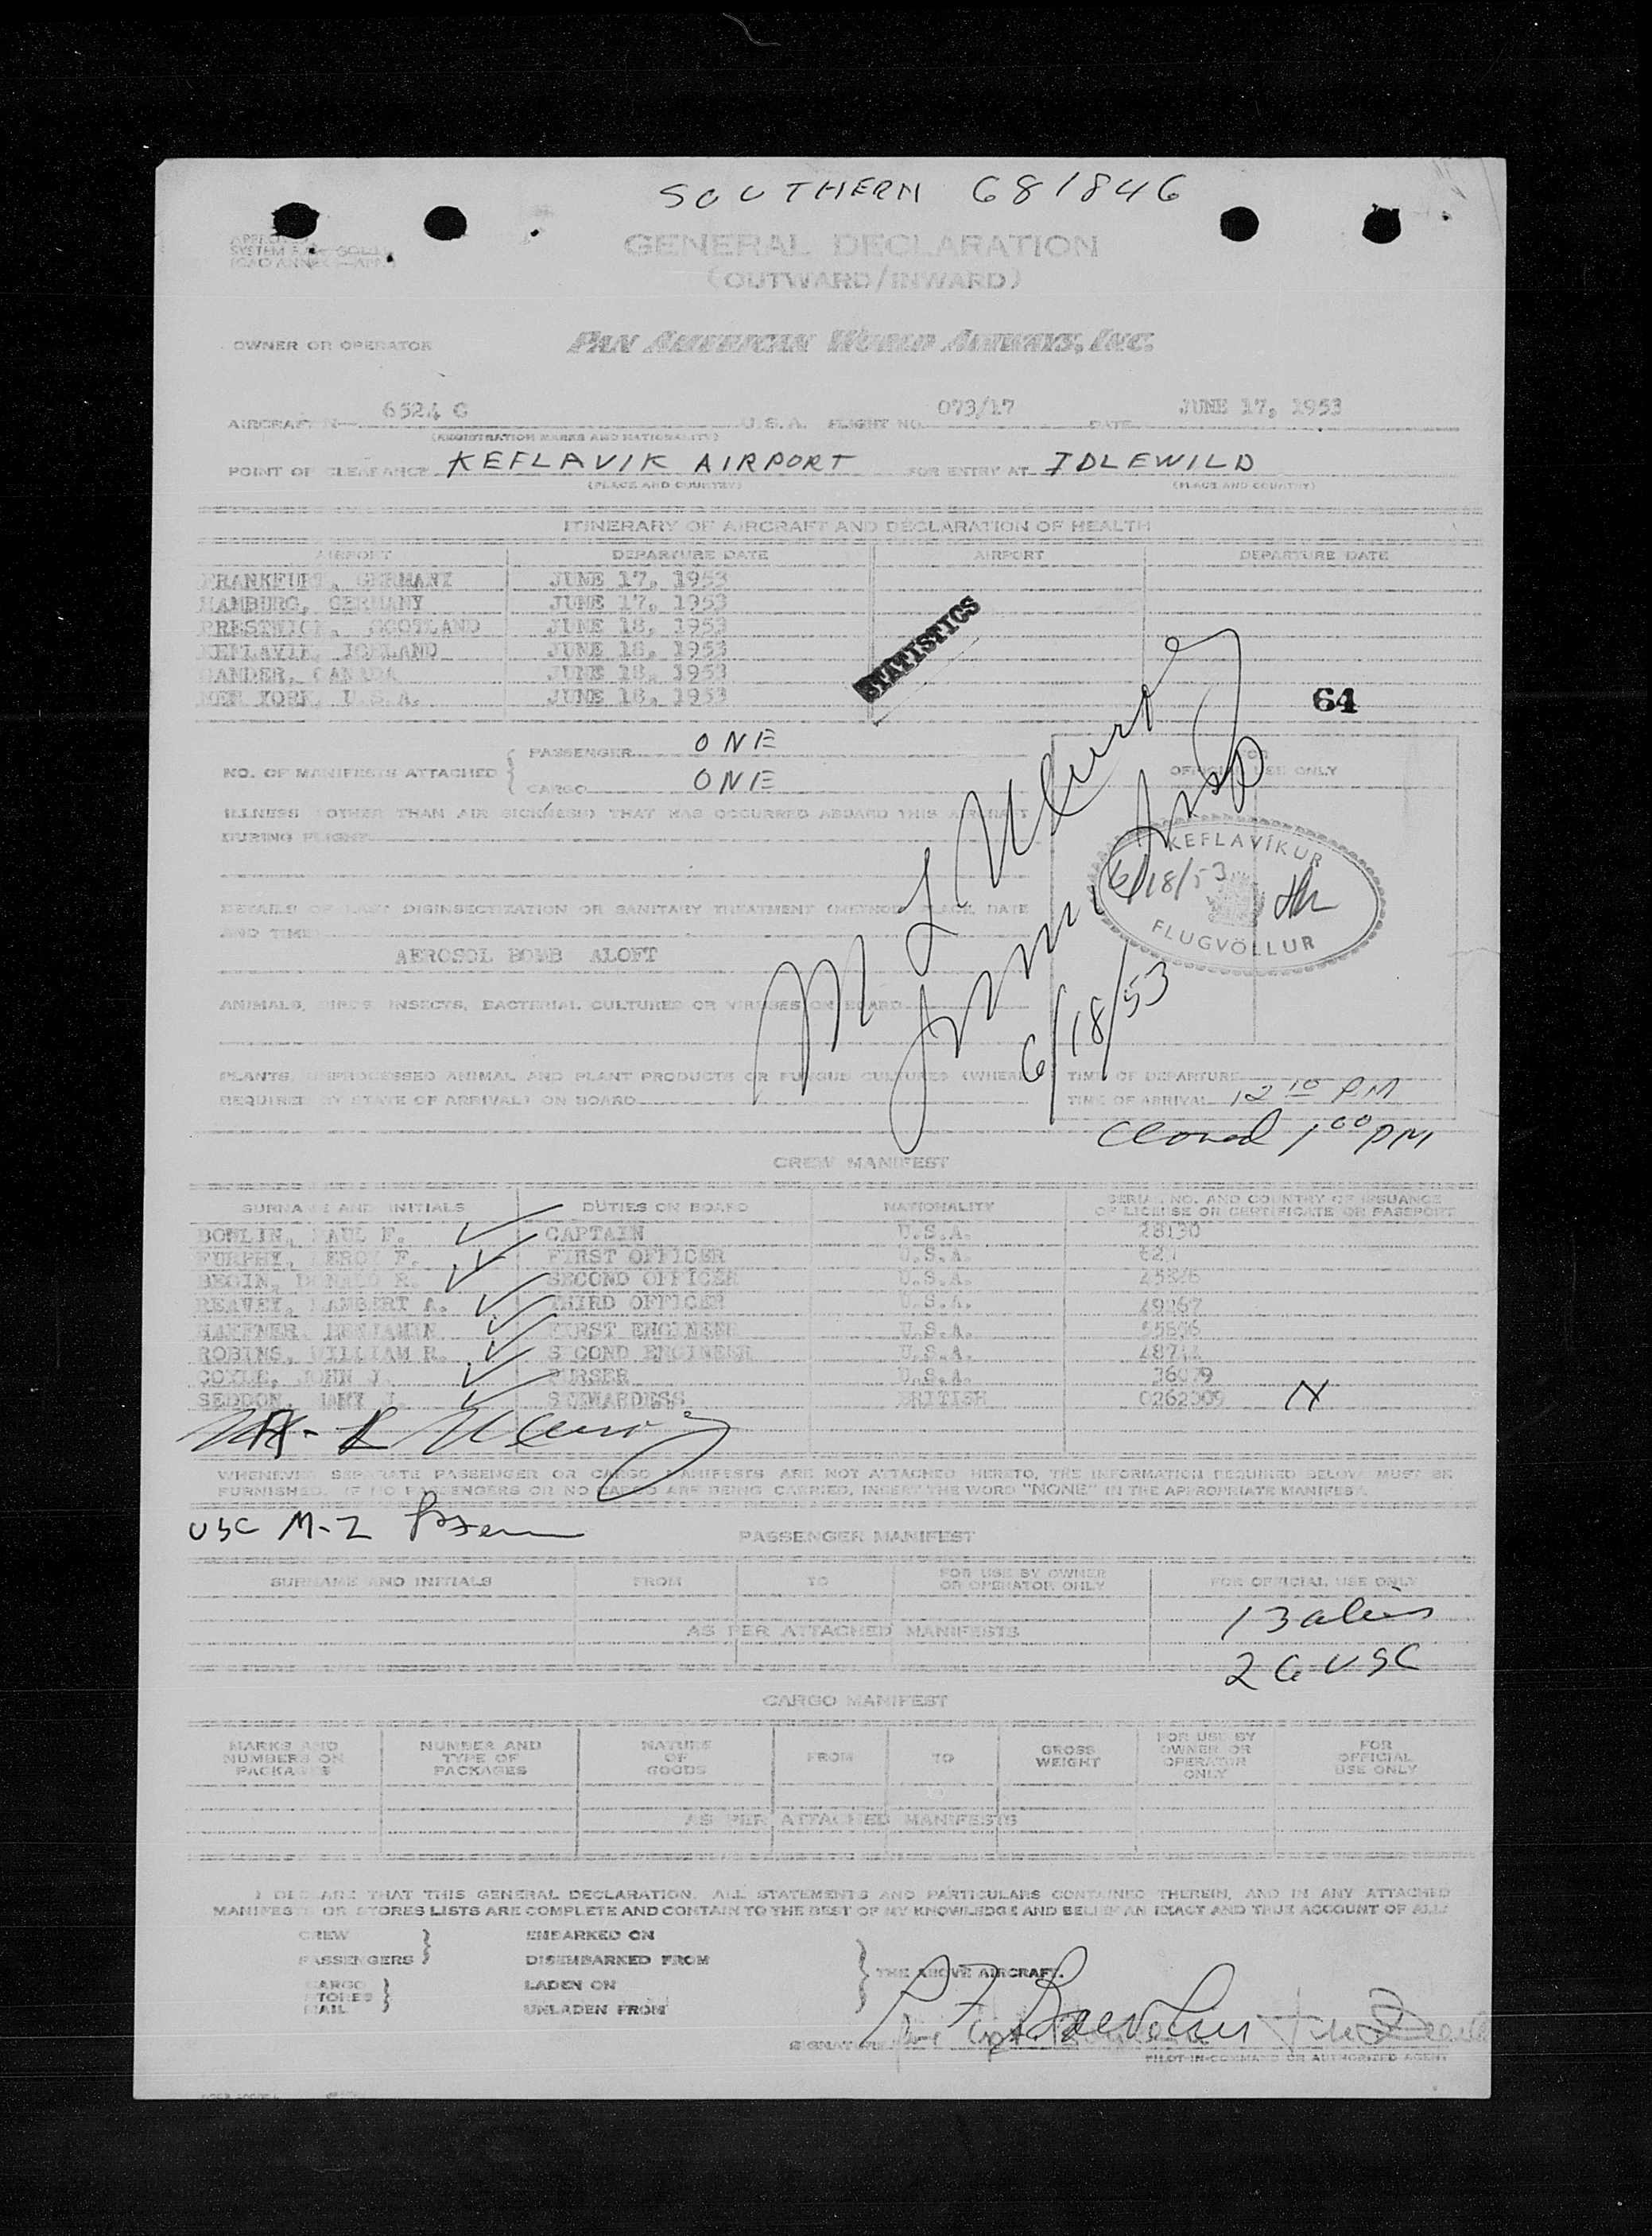 SOUTHERN 681846
GENERAL DECLARATION
(OUTWARD/INWARD)
OWNER OR OPERATOR PAN AMERICAN WORLD AIRWAYS, INC.
AIRCRAFT N— 6524 C U.S.A. FLIGHT NO. 073/17 DATE JUNE 17, 1953
(REGISTRATION MARKS AND NATIONALITY)
POINT OF CLEARANCE KEFLAVIK AIRPORT FOR ENTRY AT IDLEWILD
(PLACE AND COUNTRY) (PLACE AND COUNTRY)
ITINERARY OF AIRCRAFT AND DECLARATION OF HEALTH
AIRPORT DEPARTURE DATE AIRPORT DEPARTURE DATE
FRANKFURT, GERMANY JUNE 17, 1953
HAMBURG, GERMANY JUNE 17, 1953
PRESTWICK, SCOTLAND JUNE 18, 1953
KEFLAVIK, ICELAND JUNE 18, 1953
GANDER, CANADA JUNE 18, 1953
NEW YORK, U.S.A. JUNE 18, 1953
STATISTICS
64
NO. OF MANIFESTS ATTACHED
PASSENGER ONE
CARGO ONE
FOR
OFFICIAL USE ONLY
ILLNESS (OTHER THAN AIR SICKNESS) THAT HAS OCCURRED ABOARD THIS AIRCRAFT
DURING FLIGHT
KEFLAVÍKUR
6/18/53
FLUGVÖLLUR
DETAILS OF LAST DISINSECTIZATION OR SANITARY TREATMENT (METHOD, PLACE, DATE
AND TIME)
AEROSOL BOMB ALOFT
6/18/53
ANIMALS, BIRDS, INSECTS, BACTERIAL CULTURES OR VIRUSES ON BOARD
PLANTS, UNPROCESSED ANIMAL AND PLANT PRODUCTS OR FUNGUS CULTURES (WHERE
REQUIRED BY STATE OF ARRIVAL) ON BOARD
TIME OF DEPARTURE
TIME OF ARRIVAL 12 10 PM
1 00 PM
CREW MANIFEST
SURNAME AND INITIALS DUTIES ON BOARD NATIONALITY SERIAL NO. AND COUNTRY OF ISSUANCE
OF LICENSE OR CERTIFICATE OR PASSPORT
PAUL F. CAPTAIN U.S.A. 28130
MURPHY, LEROY F. FIRST OFFICER U.S.A.
BEGIN, DONALD R. SECOND OFFICER U.S.A.
REAVEY, LAMBERT A. THIRD OFFICER U.S.A. 49267
BENJAMIN FIRST ENGINEER U.S.A.
ROBINS, WILLIAM R. SECOND ENGINEER U.S.A.
COYLE, JOHN J. PURSER U.S.A. 36079
SEDDON, MARY J. STEWARDESS BRITISH 0262009 X
WHENEVER SEPARATE PASSENGER OR CARGO MANIFESTS ARE NOT ATTACHED HERETO, THE INFORMATION REQUIRED BELOW MUST BE
FURNISHED. IF NO PASSENGERS OR NO CARGO ARE BEING CARRIED, INSERT THE WORD "NONE" IN THE APPROPRIATE MANIFEST.
USC M-Z
PASSENGER MANIFEST
SURNAME AND INITIALS FROM TO FOR USE BY OWNER OR OPERATOR ONLY FOR OFFICIAL USE ONLY
13 aliens
AS PER ATTACHED MANIFESTS
26 USC
CARGO MANIFEST
MARKS AND NUMBERS ON PACKAGES NUMBER AND TYPE OF PACKAGES NATURE OF GOODS FROM TO GROSS WEIGHT FOR USE BY OWNER OR OPERATOR ONLY FOR OFFICIAL USE ONLY
AS PER ATTACHED MANIFESTS
I DECLARE THAT THIS GENERAL DECLARATION, ALL STATEMENTS AND PARTICULARS CONTAINED THEREIN, AND IN ANY ATTACHED
MANIFESTS OR STORES LISTS ARE COMPLETE AND CONTAIN TO THE BEST OF MY KNOWLEDGE AND BELIEF AN EXACT AND TRUE ACCOUNT OF ALL:
CREW EMBARKED ON
PASSENGERS DISEMBARKED FROM
THE ABOVE AIRCRAFT.
CARGO LADEN ON
STORES
MAIL UNLADEN FROM
SIGNATURE
PILOT-IN-COMMAND OR AUTHORIZED AGENT